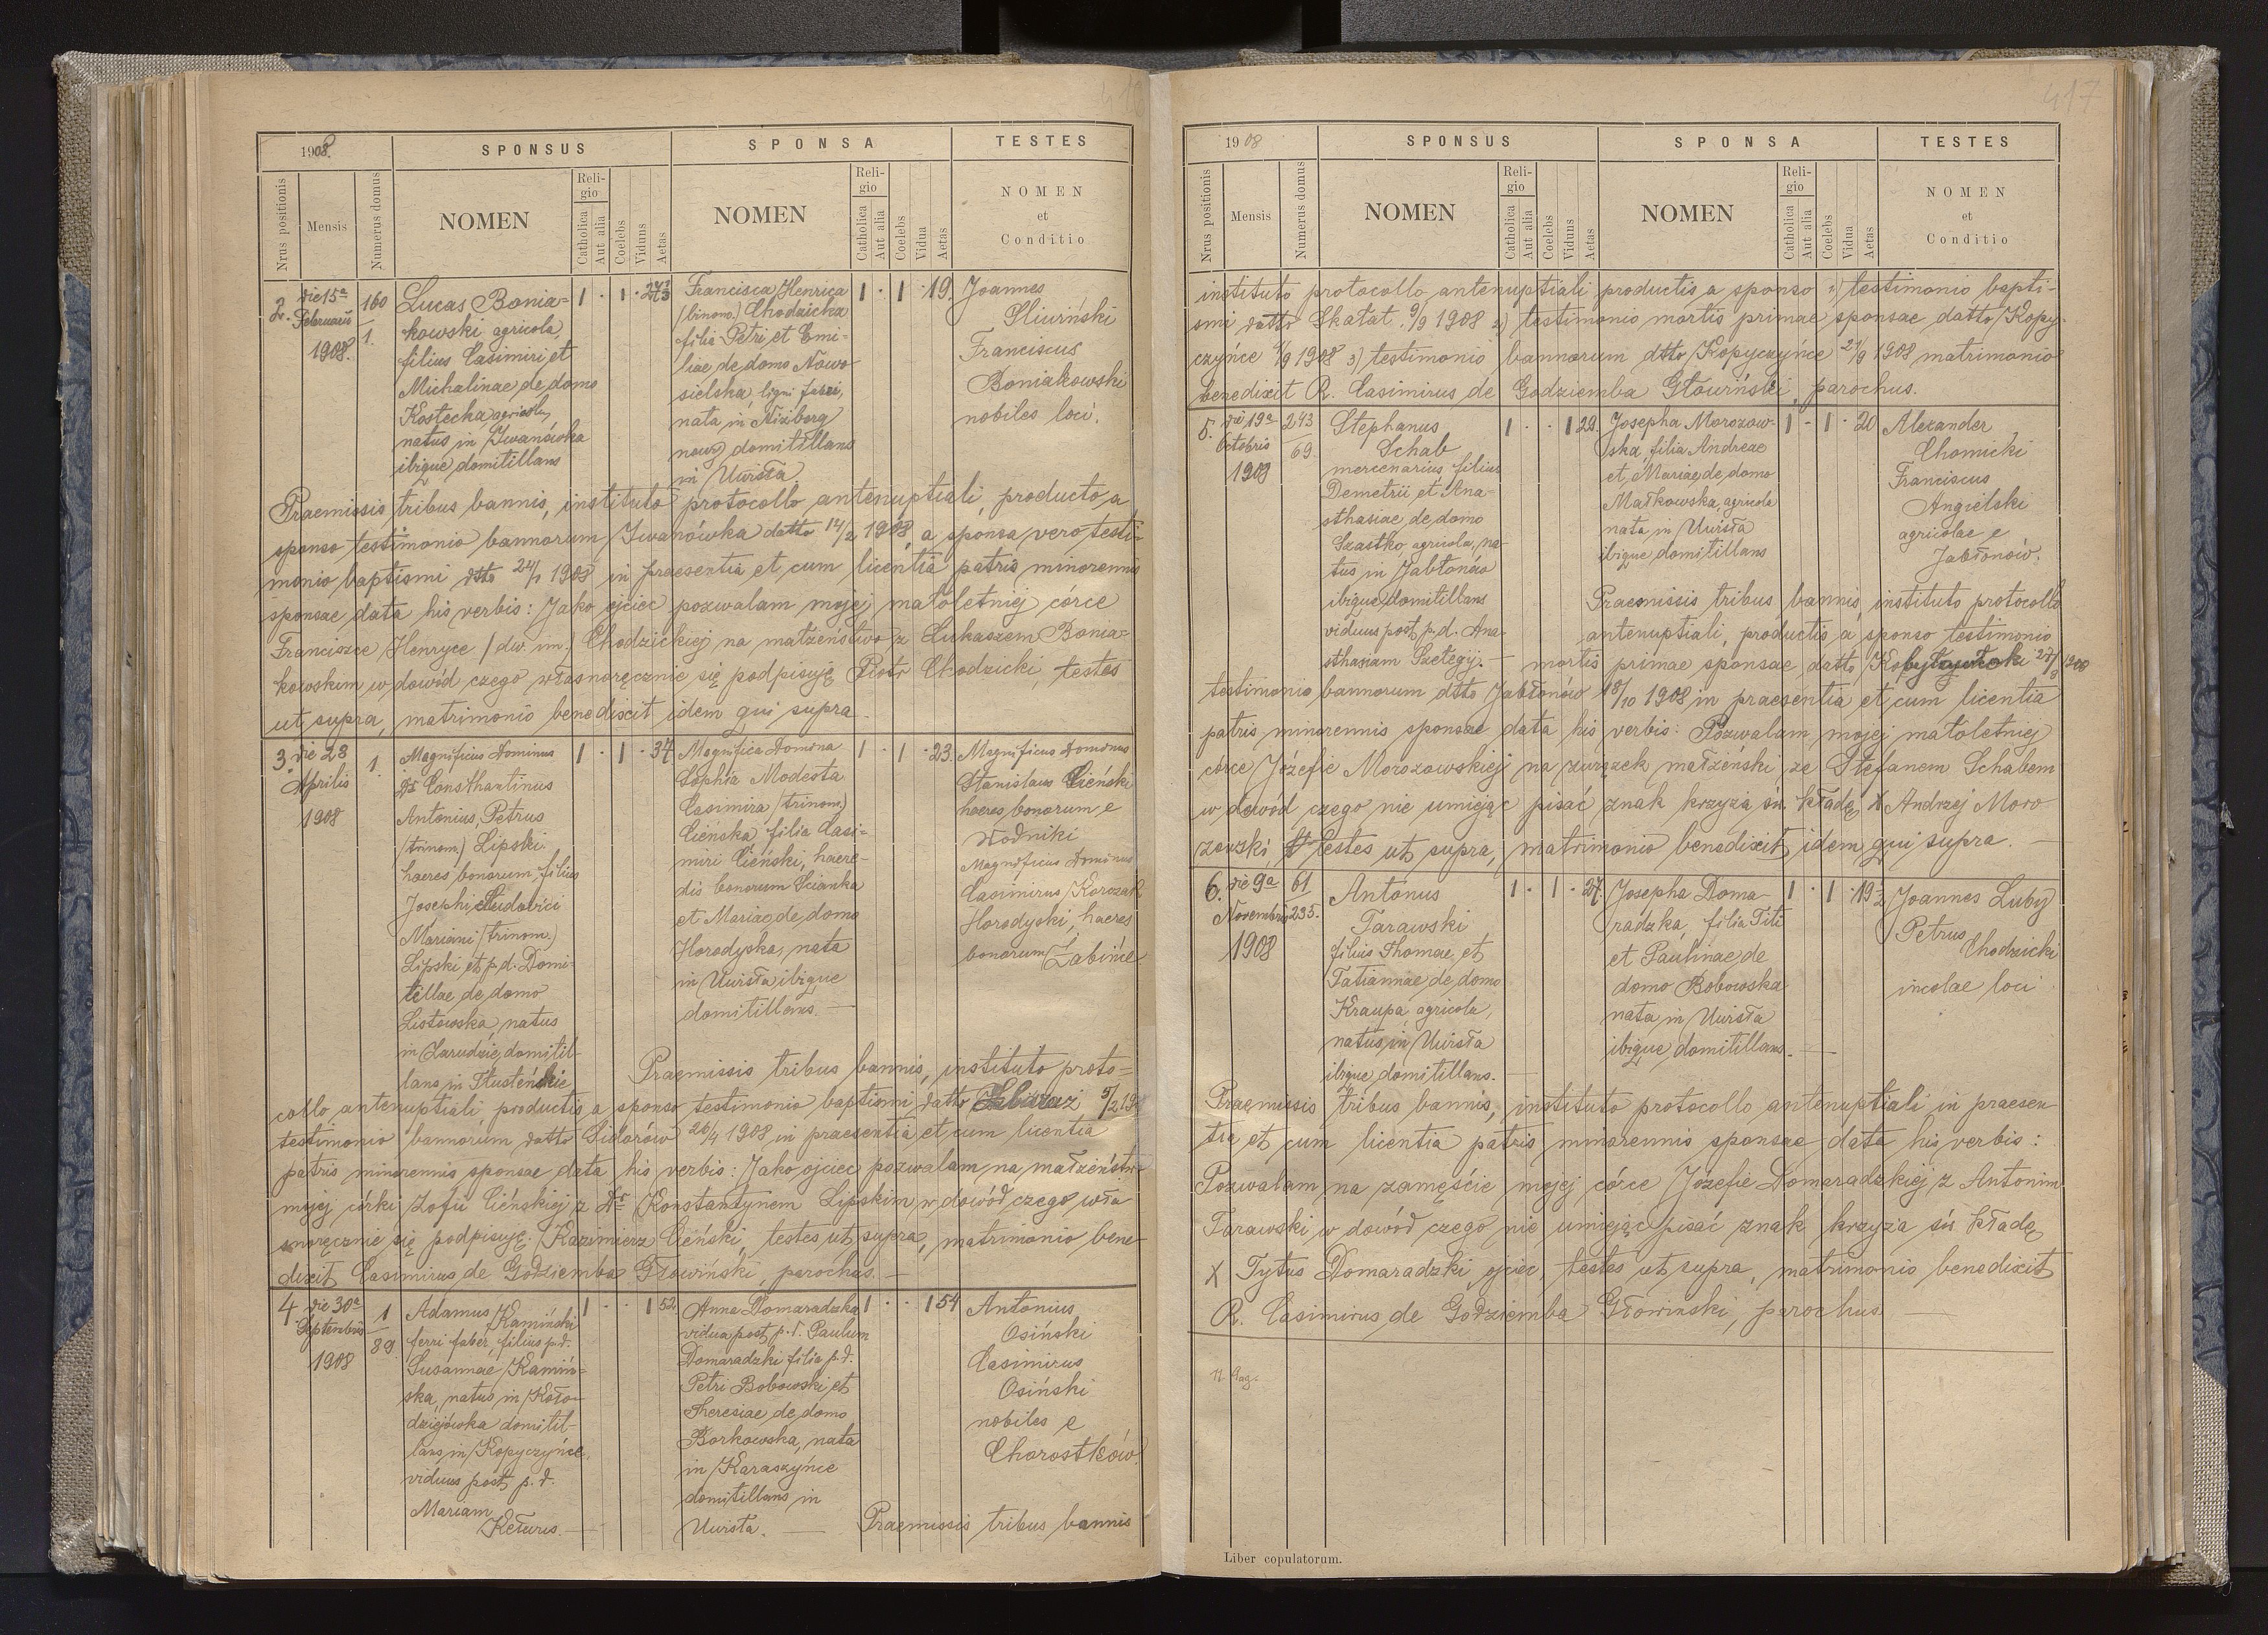 416
1908.
SPONSUS
SPONSA
TESTES
Nrus positionis
Mensis
Numerus domus
NOMEN
Religio
Catholica
Aut alia
Coelebs
Viduus
Aetas
NOMEN
Religio
Catholica
Aut alia
Coelebs
Vidua
Aetas
NOMEN
et
Conditio
2. die 15ª Februarii 1908.
160
1.
Lucas Bonia-
kowski agricola,
filius Casimiri et
Michalinae de domo
Kostecka, agricola,
natus in Iwanówka
ibique domitillans
1 · 1 ·
Francisca Henrica
(binom.) Chodzicka
filia Petri et Emi-
liae de domo Nowo-
sielska, ligni fabri,
nata in Niżborg
nowy domitillans
in Uwisła.
1 · 1 · 19.
Joannes
Sliwiński
Franciscus
Boniakowski
nobiles loci.
Praemissis tribus bannis, instituto protocollo antenuptiali, producto a
sponso testimonio bannorum Iwanówka datto 14/2 1908, a sponsa vero testi-
monio baptismi dtto 24/1 1908 in praesentia et cum licentia patris minorennis
sponsae data his verbis: Jako ojciec pozwalam mojej małoletniej córce
Franciszce Henryce (dw. im.) Chodzickiej na małżeństwo z Łukaszem Bonia-
kowskim w dowód czego własnoręcznie się podpisuję Piotr Chodzicki, testes
ut supra, matrimonio benedixit idem qui supra.
3. die 28 Aprilis 1908
1.
Magnificus Dominus
Dr Consthantinus
Antonius, Petrus
(trinom.) Lipski
haeres bonorum, filius
Josephi Ludovici
Mariani (trinom.)
Lipski et p.d. Domi-
tillae de domo
Listowska, natus
in Zarudzie, domitil-
lans in Tłusteńkie
1 · 1 · 37
Magnifica Domina
Sophia Modesta
Casimira (trinom.)
Cieńska, filia Casi-
miri Cieński, haere-
dis bonorum Scianka
et Mariae, de domo
Horodyska, nata
in Uwisła ibique
domitillans. —
1 · 1 · 23.
Magnificus Dominus
Stanislaus Cieński
haeres bonorum e
Wodniki
Magnificus Dominus
Casimirus Korczak
Horodyski, haeres
bonorum Żabińce
Praemissis tribus bannis, instituto proto-
collo antenuptiali productis a sponso testimonio baptismi datto Zbaraż 5/2 19
testimonio bannorum datto Sidorów 26/4 1908 in praesentia et cum licentia
patris minorennis sponsae data his verbis: Jako ojciec pozwalam na małżeństwo
mojej córki Zofii Cieńskiej z Dr Konstantynem Lipskim w dowód czego wła
snoręcznie się podpisuję. Kazimierz Cieński, testes ut supra, matrimonio bene-
dixit Casimirus de Godziemba Głowiński, parochus. —
4. die 30ª Septembris 1908
1
89
Adamus Kamiński
ferri faber, filius p.d.
Susannae Kamiń-
ska, natus in Koło-
dziejówka domitil-
lans in Kopyczyńce,
viduus post p. d.
Mariam
1 · · 1 52.
Anna Domaradzka
vidua post p. d. Paulum
Domaradzki filia p.d.
Petri Bobowski et
Theresiae de domo
Borkowska, nata
in Karaszyńce
domitillans in
Uwisła. —
1 · · 1 54
Antonius
Osiński
Casimirus
Osiński
nobiles e
Chorostków.
Praemissis tribus bannis
417
1908
SPONSUS
SPONSA
TESTES
Nrus positionis
Mensis
Numerus domus
NOMEN
Religio
Catholica
Aut alia
Coelebs
Viduus
Aetas
NOMEN
Religio
Catholica
Aut alia
Coelebs
Vidua
Aetas
NOMEN
et
Conditio
instituto protocollo antenuptiali productis a sponso 1) testimonio bapti-
smi datto Skałat 9/9 1908 2) testimonio mortis primae sponsae datto Kopy-
czyńce 9/9 1908 3) testimonio bannorum dtto Kopyczyńce 27/9 1908 matrimonio
benedixit R. Casimirus de Godziemba Głowiński, parochus.
5. die 19ª Octobris 1908
243
69
Stephanus
Schab
mercenarius filius
Demetrii et Ana-
sthasiae de domo
Szastko, agricola, na-
tus in Jabłonów
ibique domitillans
viduus post p.d. Ana-
sthasiam Szetegij. —
1 · · 1 29.
Josepha Morozow-
ska, filia Andreae
et Mariae, de domo
Małkowska, agricola
nata in Uwisła
ibique domitillans
1 · 1 · 20
Alexander
Chomicki
Franciscus
Angielski
agricolae e
Jabłonów.
Praemissis tribus bannis, instituto protocollo
antenuptiali, productis a sponso testimonio
mortis primae sponsae datto 27/8 1908
testimonio bannorum dtto Jabłonów 18/10 1908 in praesentia et cum licentia
patris minorennis sponsae data his verbis: Pozwalam mojej małoletniej
córce Józefie Morozowskiej na związek małżeński ze Stefanem Schabem
w dowód czego nie umiejąc pisać znak krzyża św. kładę X Andrzej Moro-
zowski testes ut supra, matrimonio benedixit idem qui supra. —
6. die 9ª Novembris 1908
61
235.
Antonus
Tarawski
filius Thomae et
Tatiannae de domo
Kraupa agricola,
natus in Uwisła
ibique domitillans. —
1 · 1 · 27.
Josepha Doma-
radzka, filia Titi
et Paulinae de
domo Bobowska
nata in Uwisła
ibique domitillans. —
1 · 1 · 19½
Joannes Luby
Petrus
Chodzicki
incolae loci
Praemissis tribus bannis, instituto protocollo antenuptiali in praesen
tia et cum licentia patris minorennis sponsae data his verbis:
Pozwalam na zamęście mojej córce Józefie Domaradzkiej z Antonim
Tarawski w dowód czego nie umiejąc pisać znak krzyża św. kładę
X Tytus Domaradzki ojciec, testes ut supra, matrimonio benedixit
R. Casimirus de Godziemba Głowinski, parochus
Liber copulatorum.